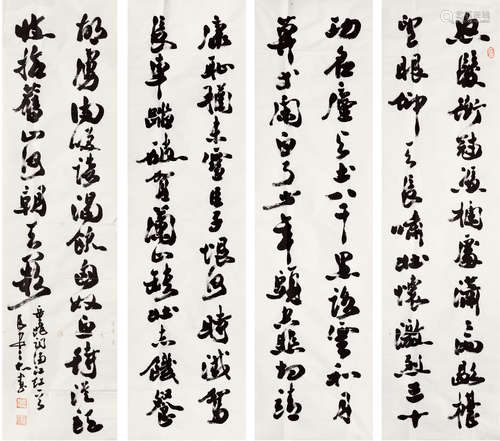 怒髮衝冠憑欄處瀟瀟雨歇抬
望眼仰天長嘯壯懷激烈三十
功名塵與土八千里路雲和月
莫等閑白了少年頭空悲切靖
康恥猶未雪臣子恨何時滅駕
長車踏破賀蘭山缺壯志饑餐
胡虜肉笑談渴飲匈奴血待從頭
收拾舊山河朝天闕
岳飛詞滿江紅一首